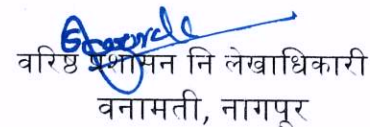 वरिष्ठ प्रशासन नि लेखाधिकारी
वनामती, नागपूर